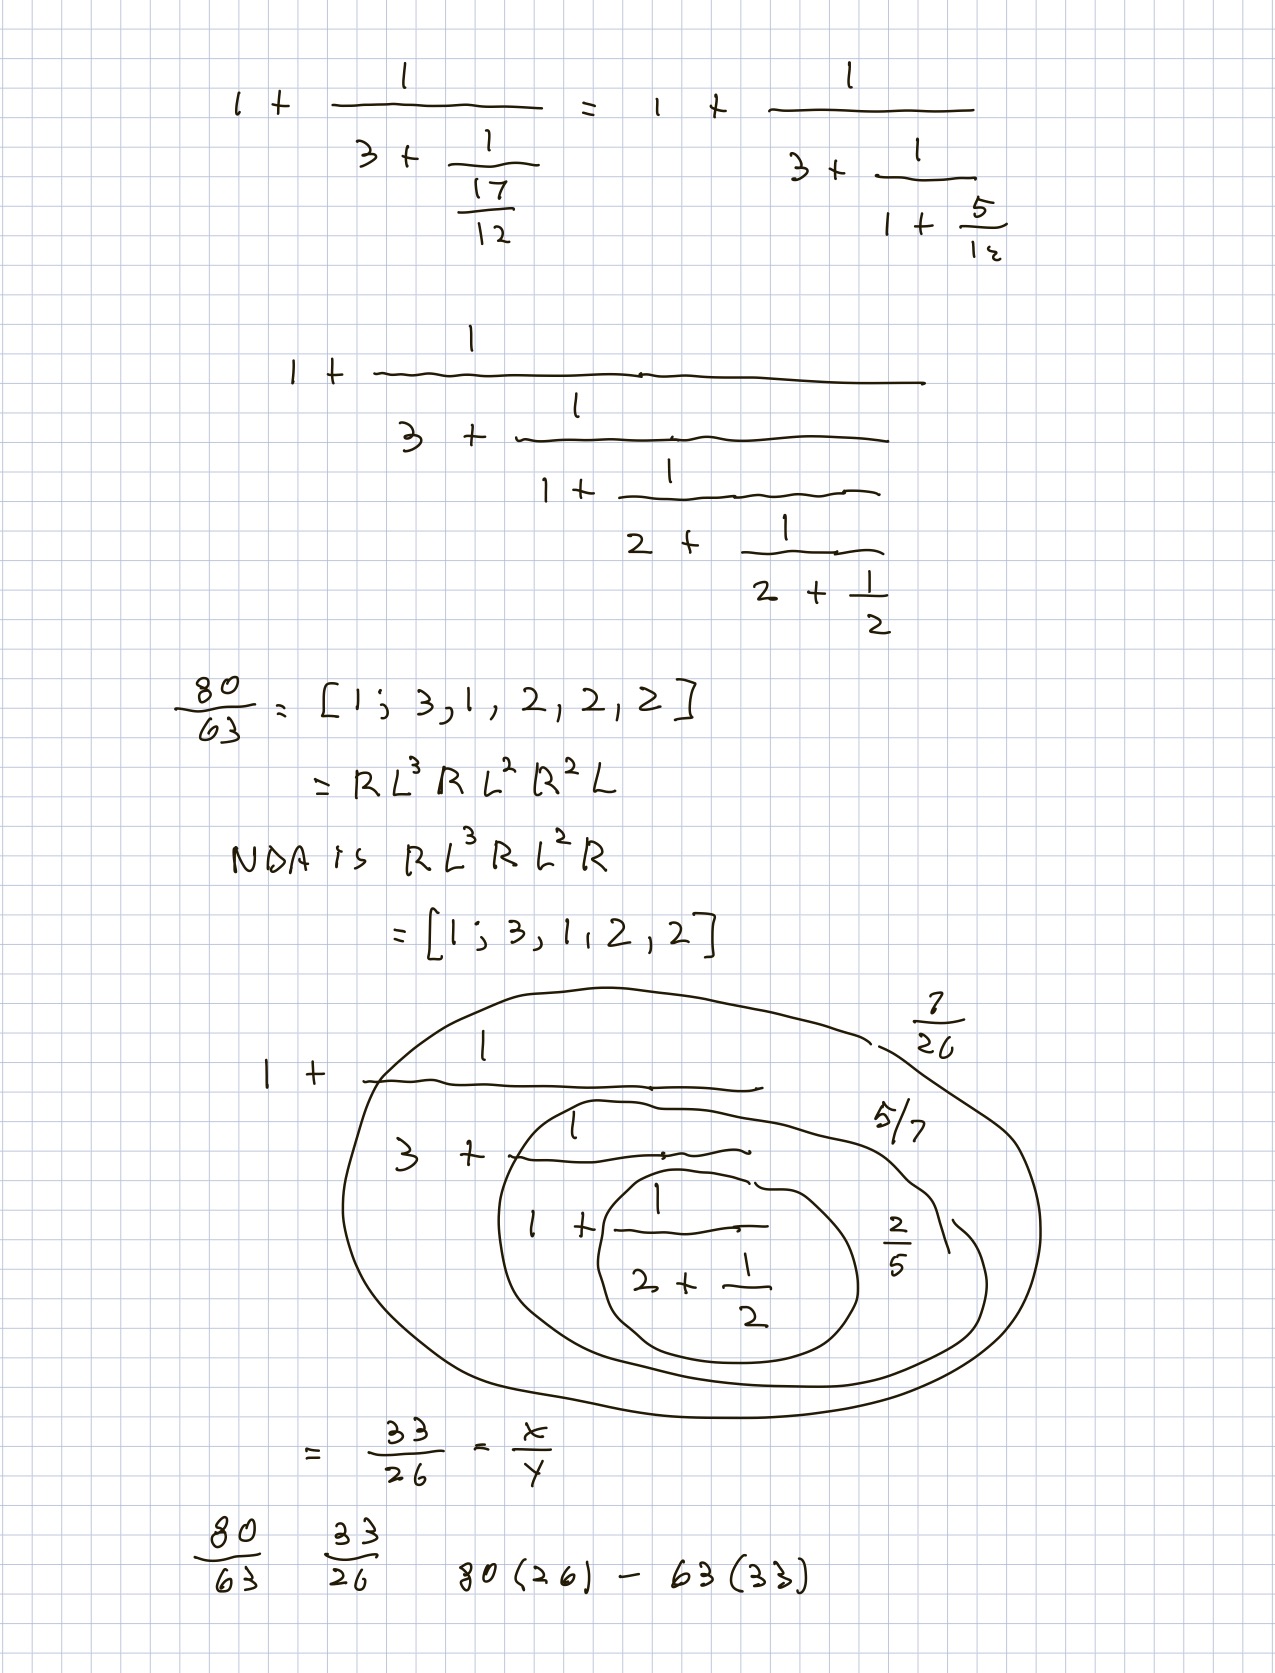 1 + 1/(3 + 1/(17/12)) = 1 + 1/(3 + 1/(1 + 5/12))
1 + 1/(3 + 1/(1 + 1/(2 + 1/(2 + 1/2))))
80/63 = [1; 3, 1, 2, 2, 2]
= R L^3 R L^2 R^2 L
NDA is R L^3 R L^2 R
= [1; 3, 1, 2, 2]
7/26
1 + 1/(3 + 1/(1 + 1/(2 + 1/2)))
5/7
2/5
= 33/26 = x/y
80/63 33/26 80(26) - 63(33)